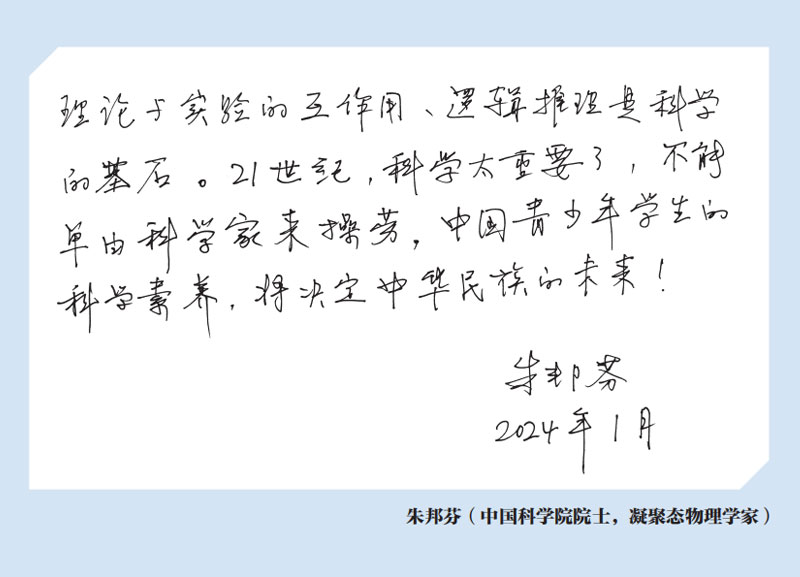 理论与实验的互作用、逻辑推理是科学
的基石。21世纪,科学太重要了,不能
单由科学家来操劳,中国青少年学生的
科学素养,将决定中华民族的未来!
朱邦芬
2024年1月
朱邦芬(中国科学院院士,凝聚态物理学家)